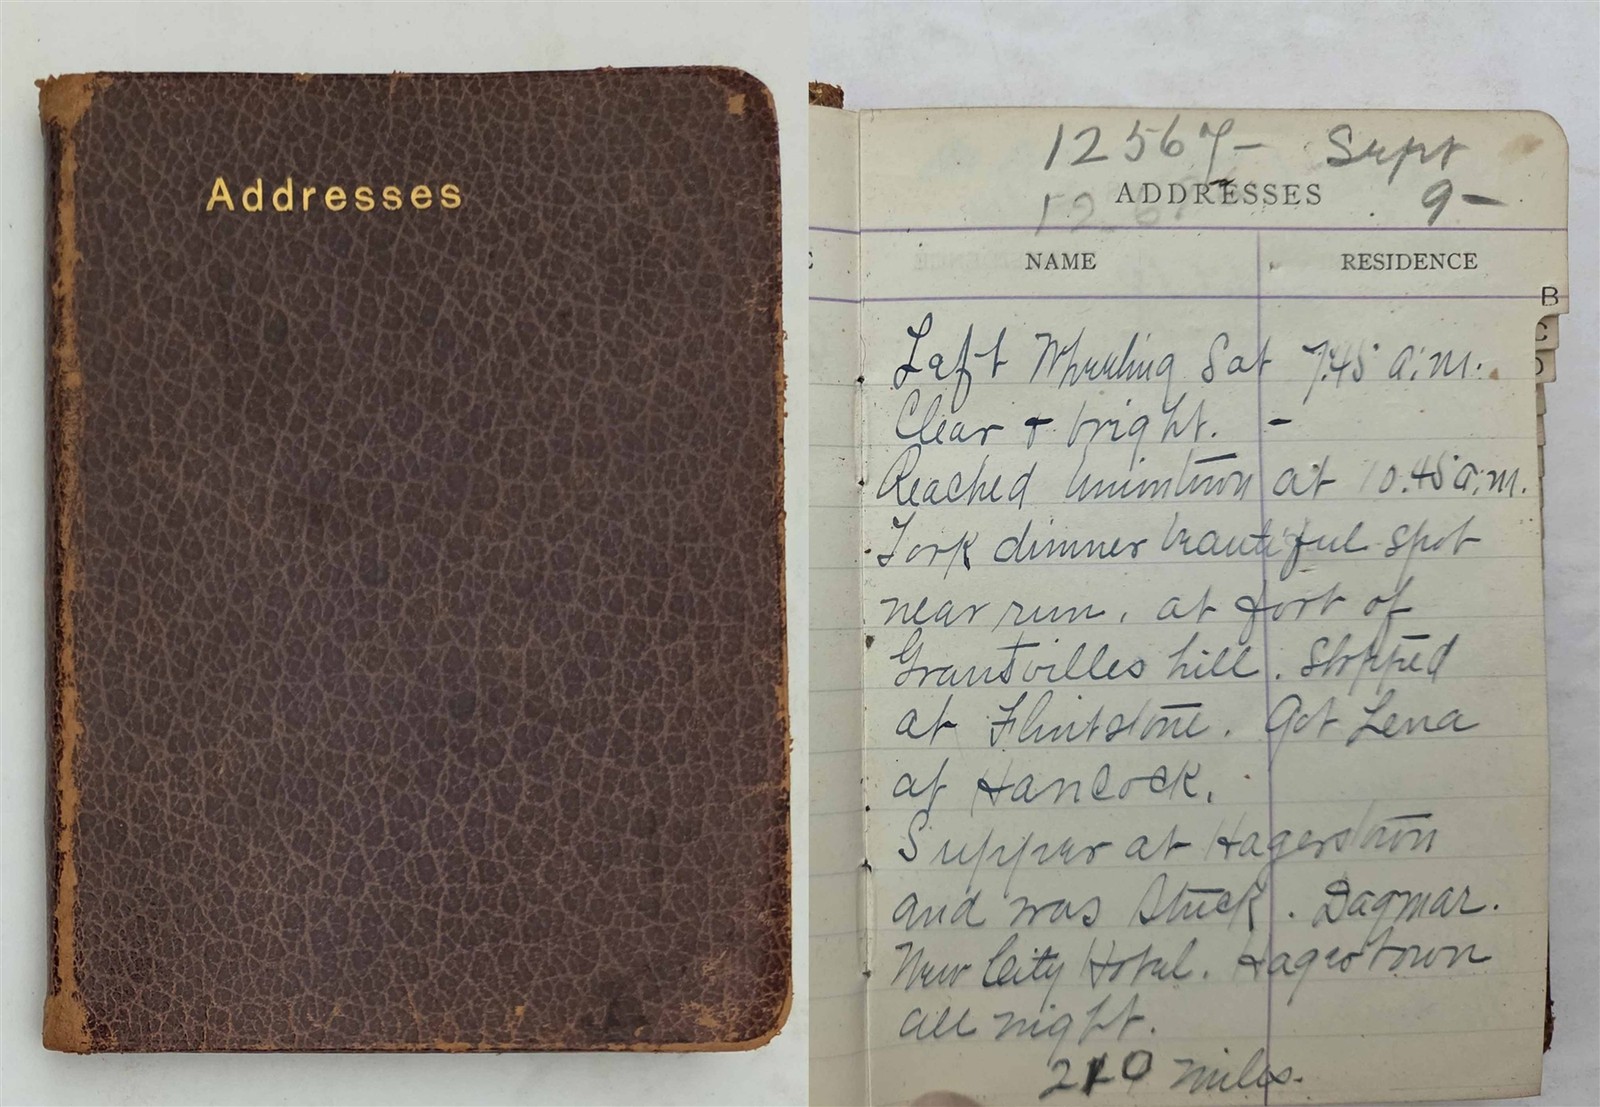 Addresses
12567- Sept
ADDRESSES 9-
NAME RESIDENCE
B
C
D
Left Wheeling Sat 7.45 a.m.
Clear + bright. -
Reached Uniontown at 10.45 a.m.
Took dinner beautiful spot
near run. at foot of
Grantsvilles hill. Stopped
at Flintstone. Got Lena
at Hancock.
Supper at Hagerstown
and was stuck. Dagmar.
New City Hotel. Hagerstown
all night.
210 miles.